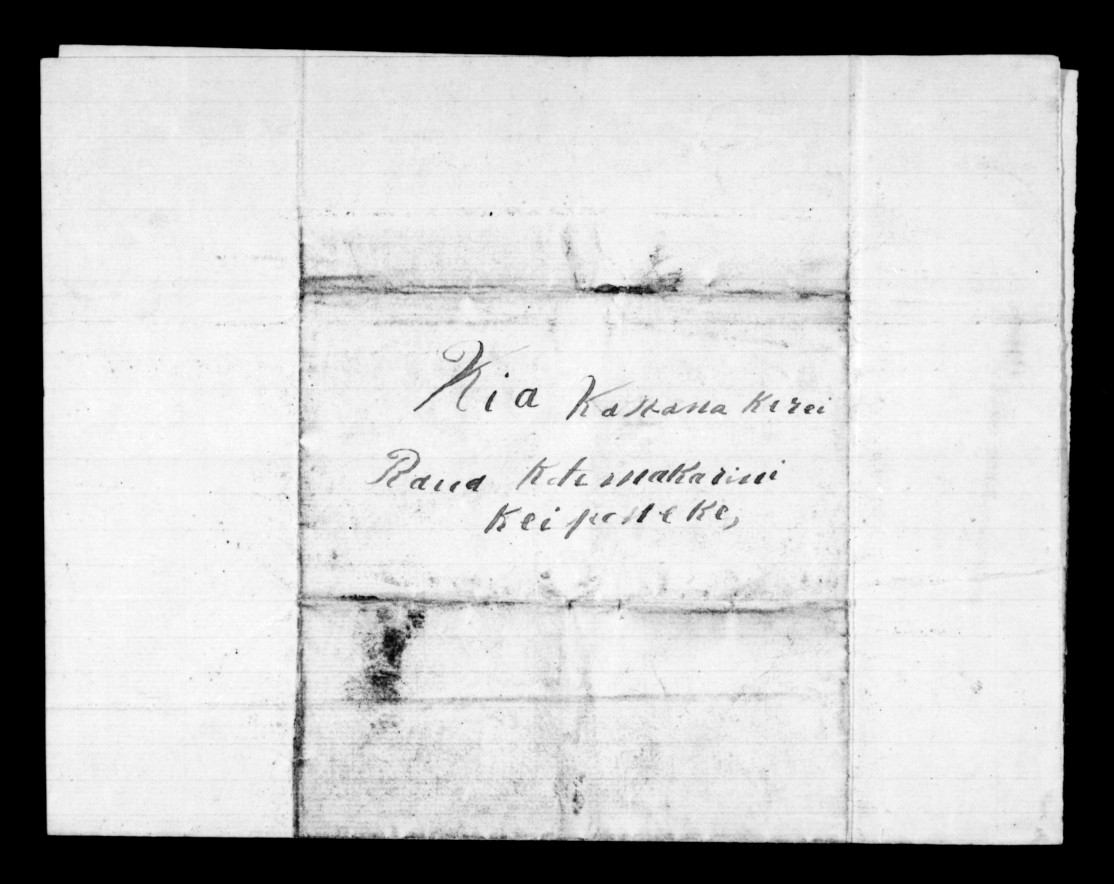 Kia Kanana Kerei
Raua Ko te makarini
Kei poneke,